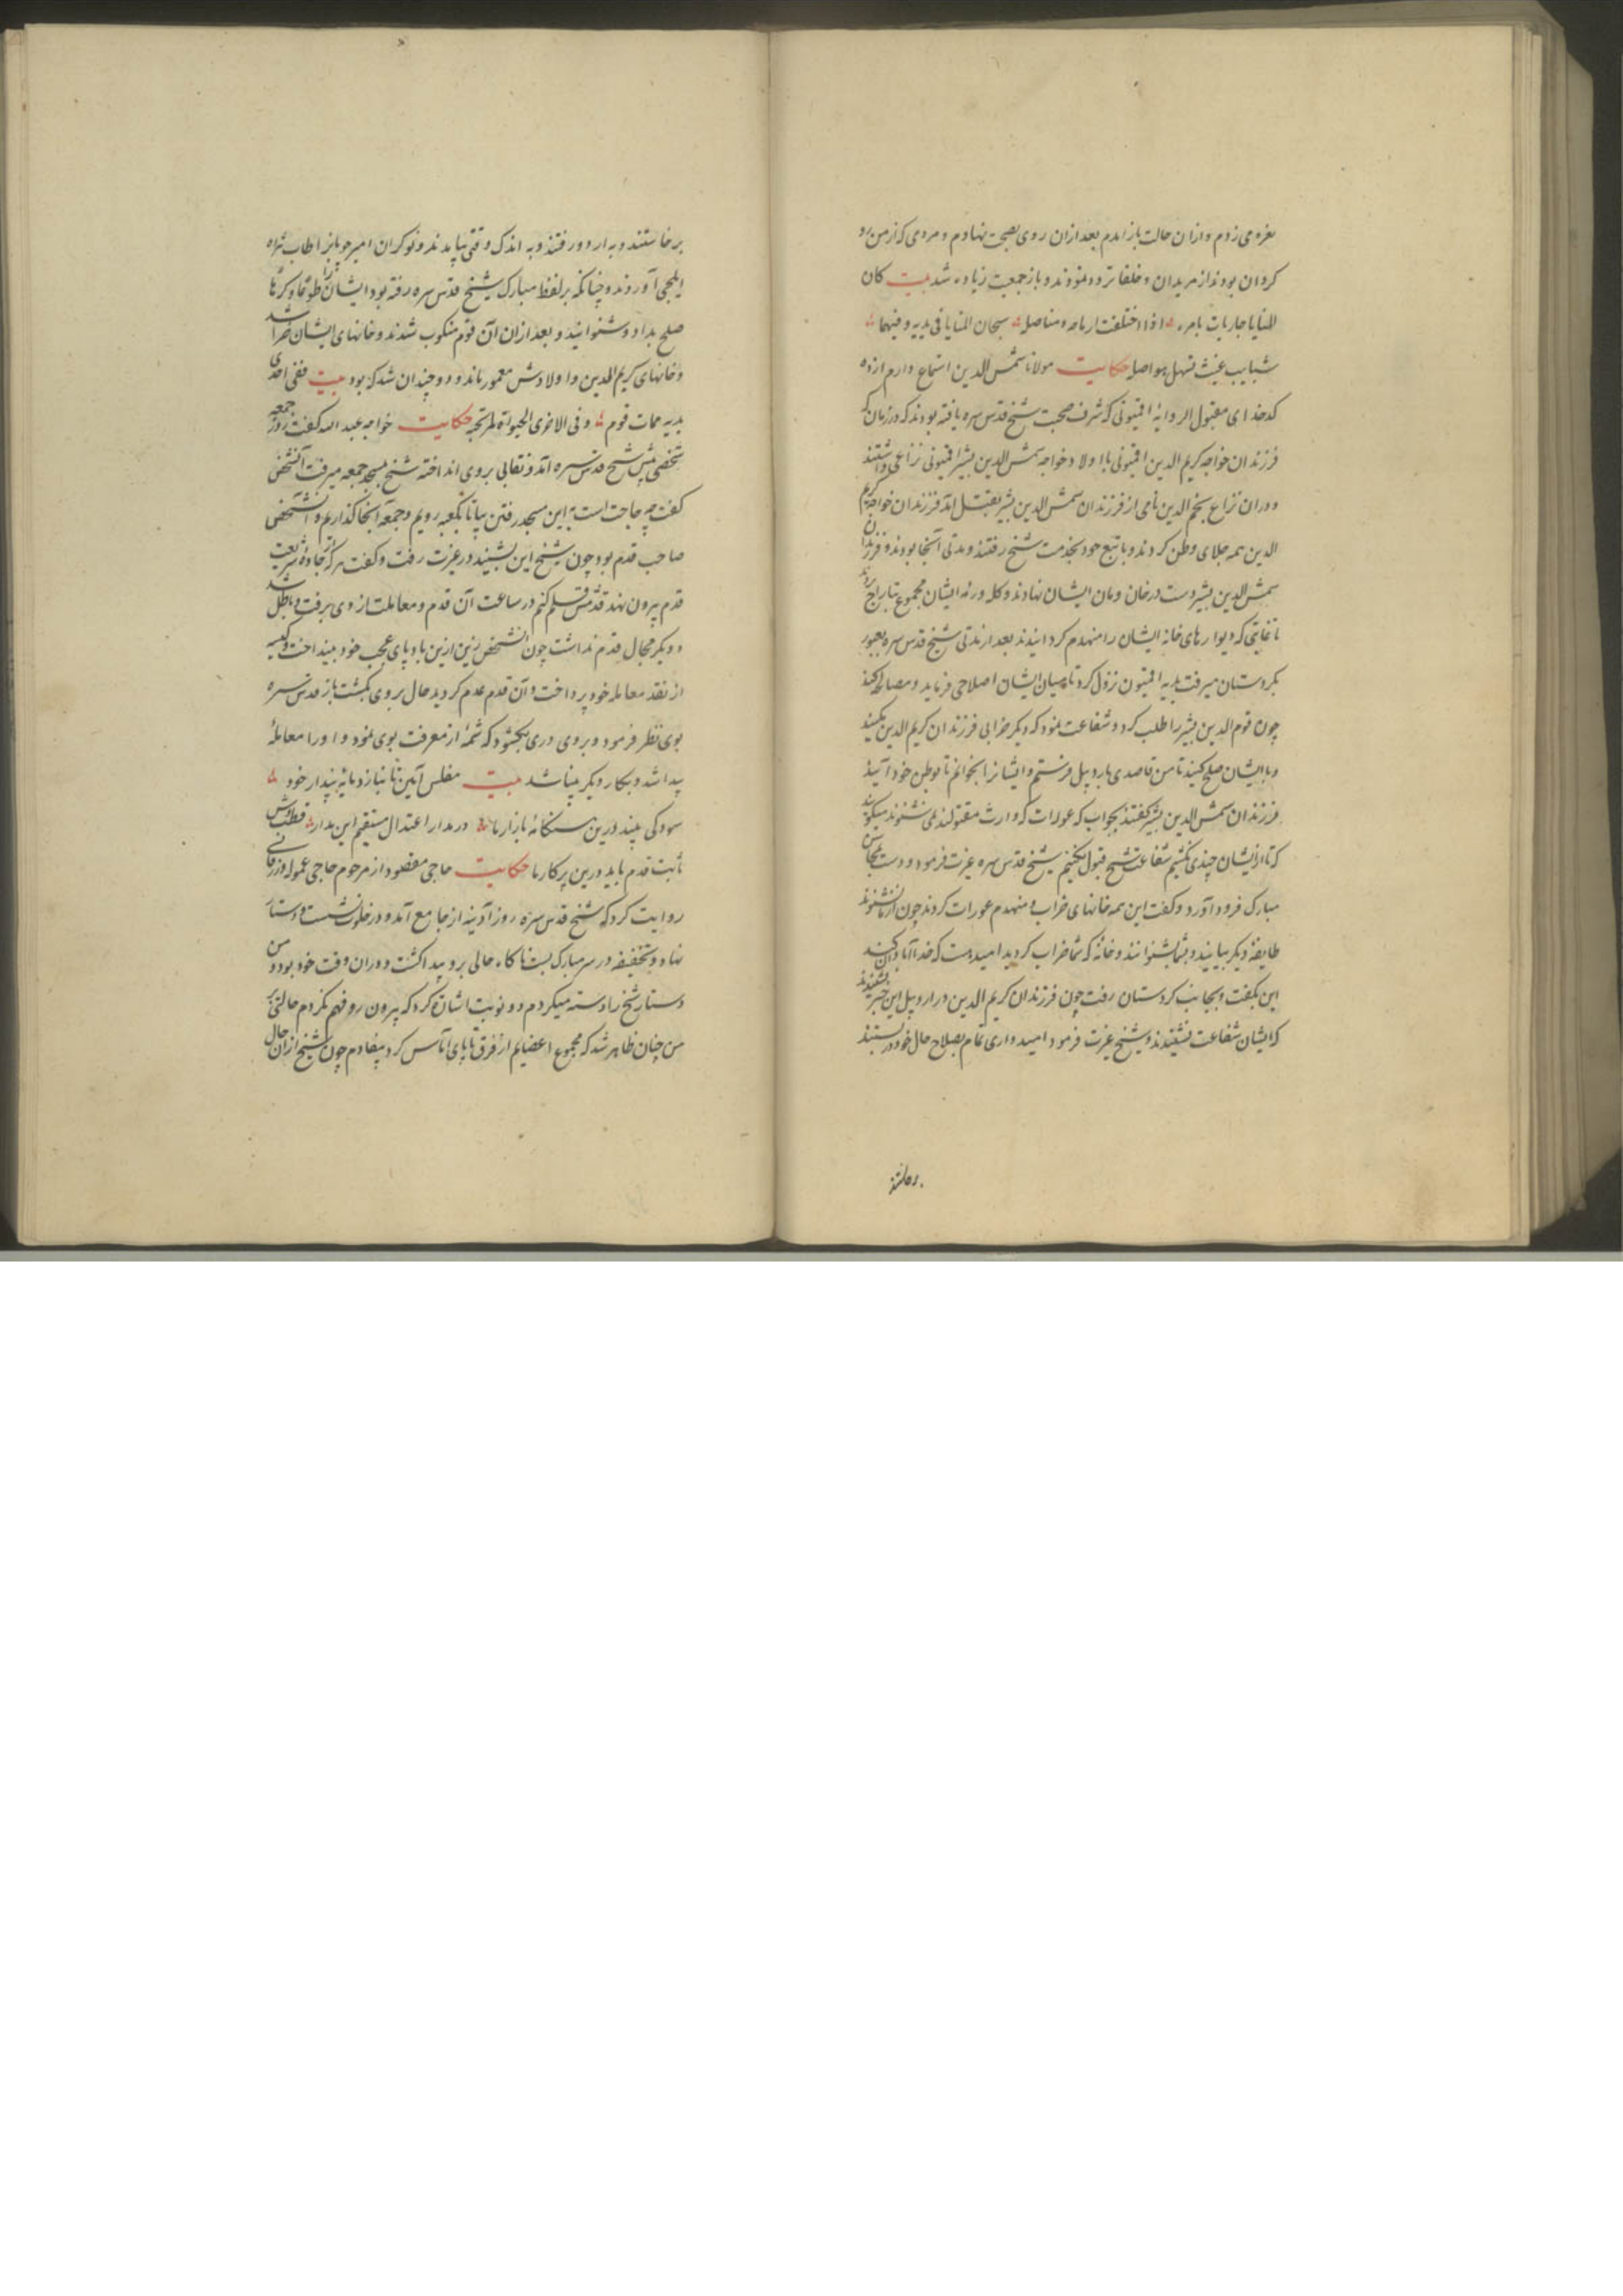 نعره می زدم و از ان حالت باز امدم بعد ازان روی بصحت نهادم و مردمی که از من رو
کردان بودند از مریدان و خلفا تردد نمودند و باز جمعیت زیاده شد بیت کان
المنایا جاریات بامره اذا اختلفت ارماحه و مناصله سبحان المنایا فی یدیه و فیهما
شبابیب غیث تنهل هواصله حکایت مولانا شمس الدین استماع دارم از ده
کدخدای مقبول الروایه اقمیونی که شرف صحبت شیخ قدس سره یافته بودند که در زمان که
فرزندان خواجه کریم الدین اقمیونی با اولاد خواجه شمس الدین بشیر اقمیونی نزاعی داشتند
و دران نزاع نجم الدین نامی از فرزندان شمس الدین بشیر بقتل آمد فرزندان خواجه کریم
الدین همه جلای وطن کردند و با تبع خود بخدمت شیخ رفتند و مدتی آنجا بودند و فرزندان
شمس الدین بشیر دست در خان و مان ایشان نهادند و کله و رمه ایشان مجموع بتاراج بردند
تا غایتی که دیوارهای خانه ایشان را منهدم کردانیدند بعد از مدتی شیخ قدس سره بعبور
بکردستان میرفت بدیه اقمیون نزول کرد تا میان ایشان اصلاحی فرماید و مصالحه کند
چون قوم الدین بشیر را طلب کرد و شفاعت نمود که دیکر خرابی فرزندان کریم الدین مکنید
و با ایشان صلح کنید تا من قاصدی باردبیل فرستم و ایشانرا بخوانم تا بوطن خود آیند
فرزندان شمس الدین بشیر کفتند بجواب که عورات که وارث مقتولند نمی شنوند میکویند
که تا از ایشان چندی نکشیم شفاعت شیخ قبول نکنیم شیخ قدس سره غیرت فرمود و دست بمحاسن
مبارک فرود آورد و کفت این همه خانهای خراب و منهدم عورات کردند چون از ما نشنوند
طایفه دیکر بیایند و بشما بشنوانند و خانه که شما خراب کردید امید هست که خدا آبادان کند
این بکفت و بجانب کردستان رفت چون فرزندان کریم الدین در اردبیل این خبر بشنیدند
که ایشان شفاعت نشنیدند و شیخ غیرت فرمود امیدواری تمام بصلاح حال خود در بستند
برخاستند و به اردو رفتند و به اندک وقتی بیامدند و نوکران امیر چوبانرا طلب
ایلچی آوردند و چنانکه بر لفظ مبارک شیخ قدس سره رفته بود ایشانرا طوعا و کرها
صلح بداد و شنوانید و بعد ازان آن قوم منکوب شدند و خانهای ایشان خراب شد
و خانهای کریم الدین و اولادش معمور ماند و دو چندان شد که بود بیت ففی احدی
یدیه ممات قوم و فی الاخری الحیوة لمرتجیه حکایت خواجه عبد الله کفت روز جمعه
شخصی پیش شیخ قدس سره آمد و نقابی بروی انداخته شیخ بمسجد جمعه میرفت آنشخص
کفت چه حاجت است باین مسجد رفتن بیا تا بکعبه رویم و جمعه آنجا کذاریم و آن شخص
صاحب قدم بود چون شیخ این بشنید در غیرت رفت و کفت هر که از جاده شریعت
قدم بیرون نهد قدمش قلم کنم در ساعت آن قدم و معاملت از وی برفت و باطل شد
و دیکر مجال قدم نداشت چون آنشخص ازین باد پای عجب خود بینداخت و کیسه
از نقد معامله خود پرداخت و آن قدم عدم کردید حال بروی بکشت باز قدس سره
بوی نظر فرمود و بروی دری بکشود که شمه از معرفت بوی نمود و او را معامله
پیدا شد و بکار دیکر بینا شد بیت مفلس آیین تا نیازد مایه پندار خود
سودکی بیند درین سنکانه بازار ما در مدار اعتدال مستقیم این مدار قطب وش
ثابت قدم باید درین پرکار ما حکایت حاجی مقصود از مرحوم حاجی
روایت کرد که شیخ قدس سره روز آدینه از جامع آمد و در خلوت نشست و دستار
نهاد و تخفیفه در سر مبارک بست ناکاه حالی برو پیدا کشت و دران وقت خود بود و من
دستار شیخ را دسته میکردم دو نوبت اشاره کرد که بیرون رو فهم نکردم حالتی بر
من چنان ظاهر شد که مجموع اعضایم از فرق تا پای آماس کرد بیفتادم چون شیخ ازان حال